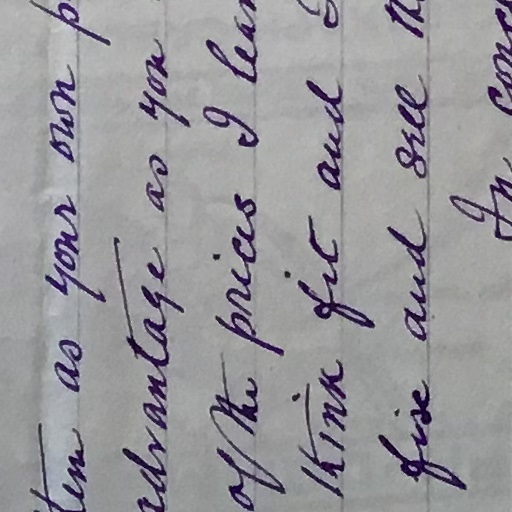 tem as your own p
advantage as you
of the prices I lear
think fit and I
fix and sell th
In conc